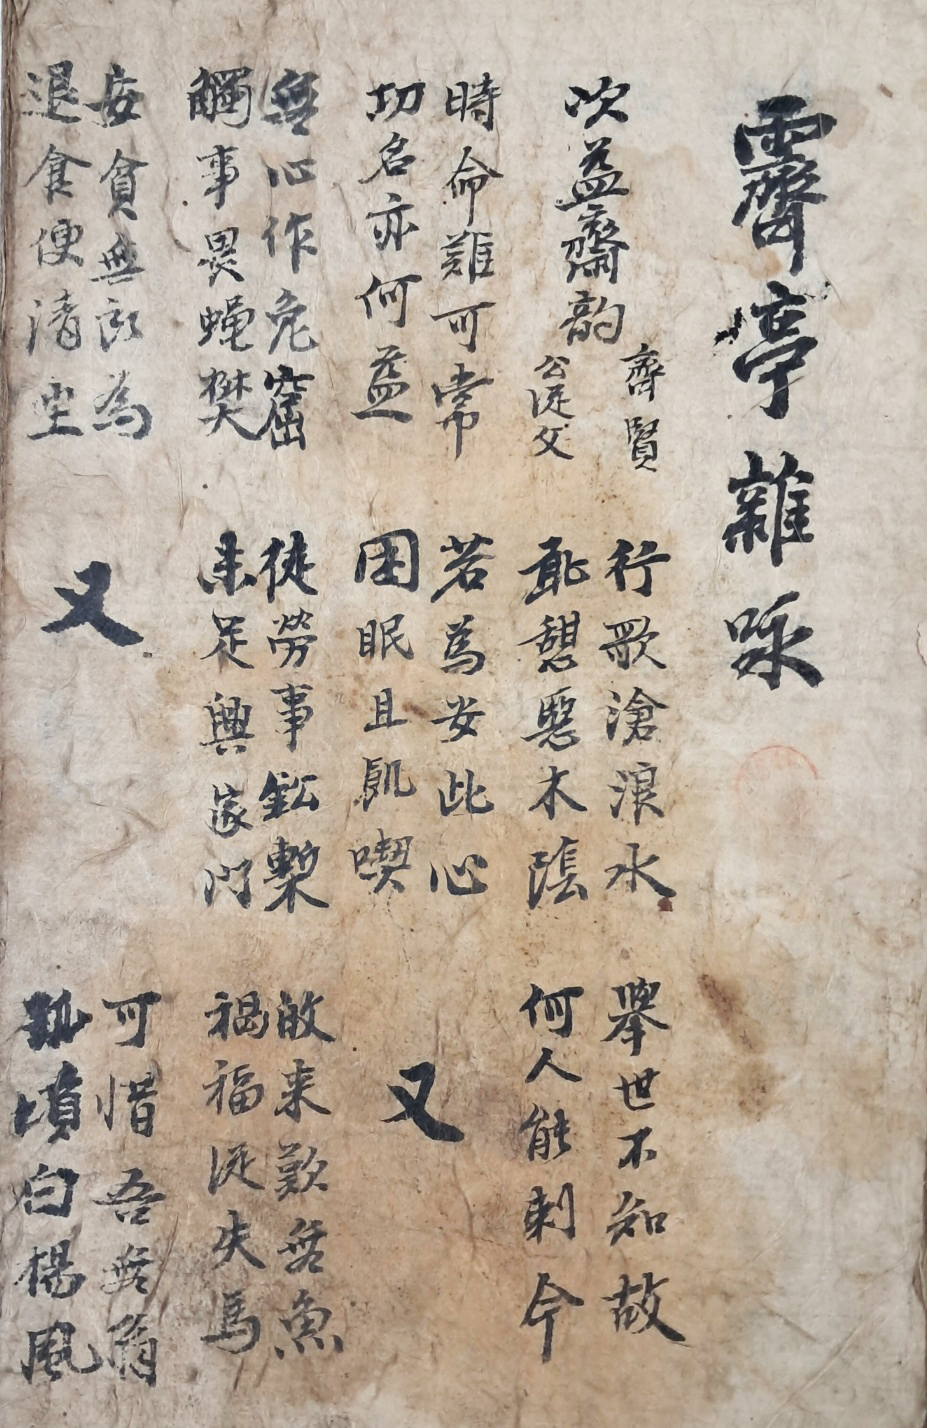 霽亭雜咏
次益齋韻
齊賢
公從父
行歌滄浪水
耻憩惡木陰
擧世不知故
何人能刺今
時命難可常
功名亦何益
若為安此心
困眠且飢喫
又
無心作兔窟
觸事畏蝇樊
徒勞事鈆槧
未足興家門
来歎無魚
禍福從失馬
安貧無所為
退食便清坐
又
可惜吾無肖
孤墳白楊風